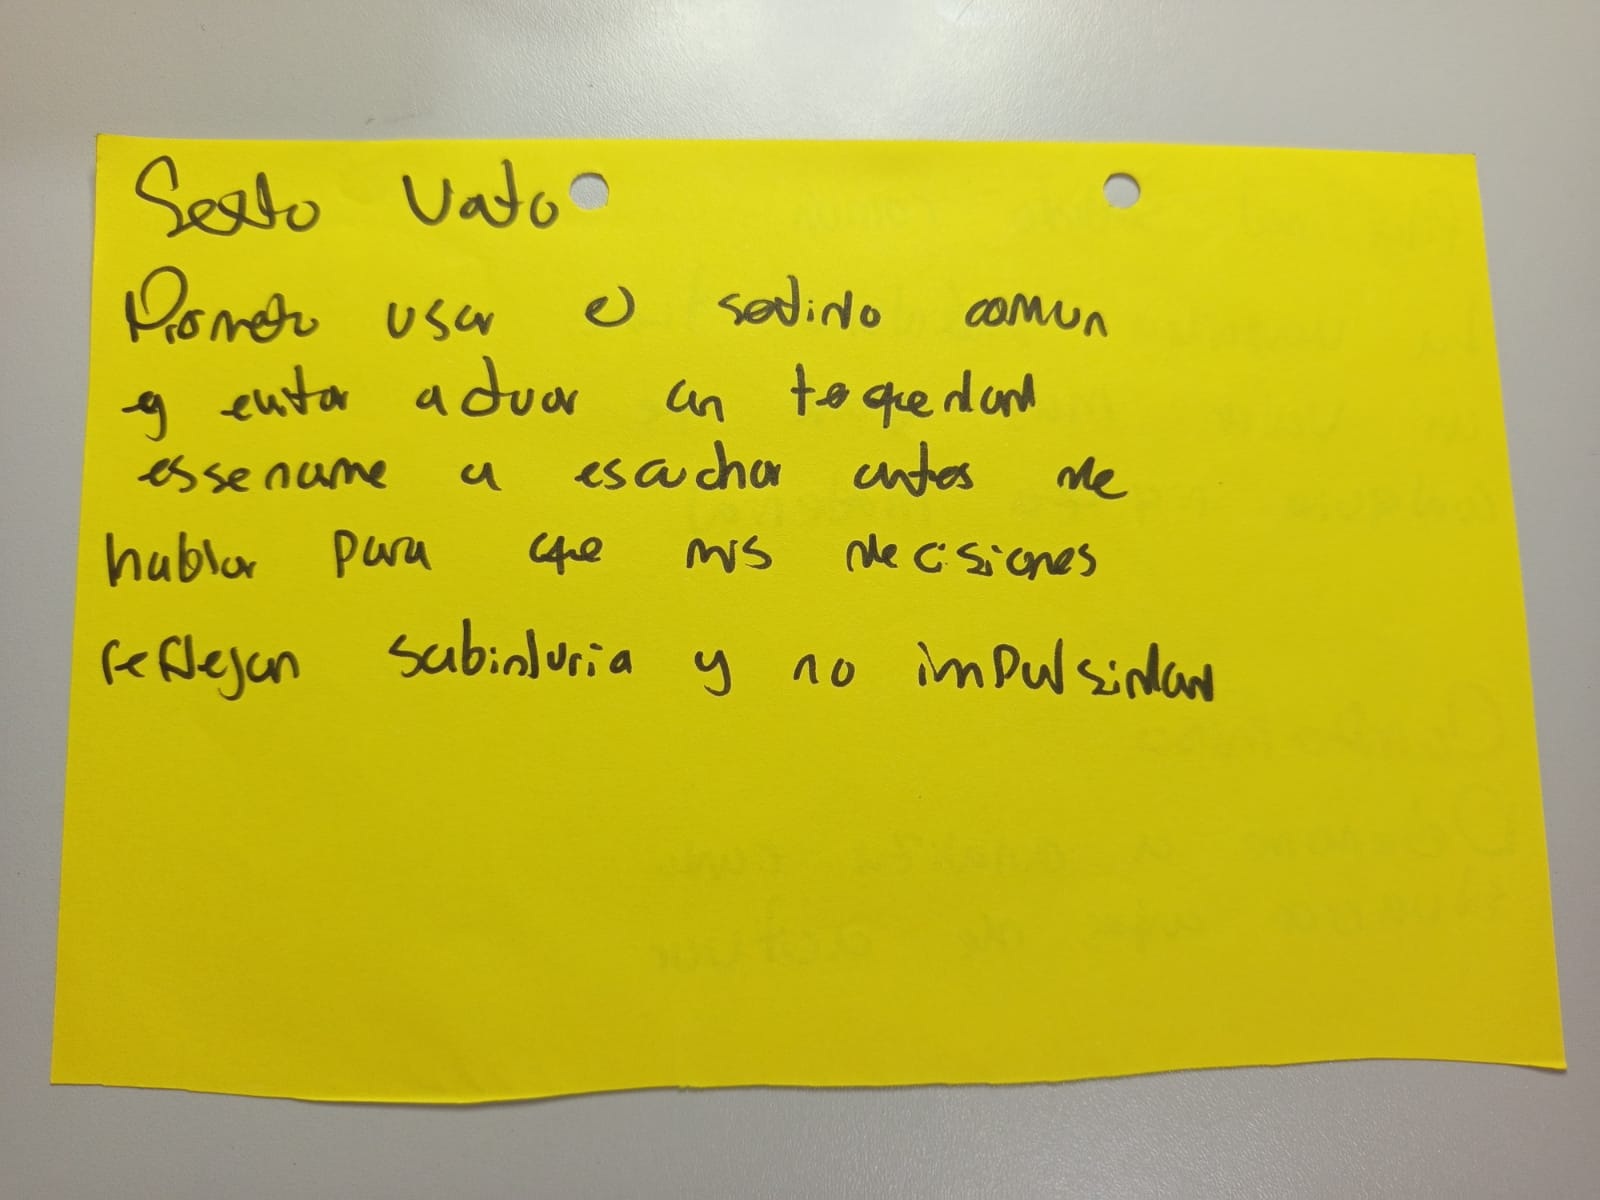 Sexto Voto
Prometo usar el sentido comun
y evitar actuar an toquedad
essename a escuchar antes de
hablar para que mis decisiones
reflejan sabiduria y no impulsidad